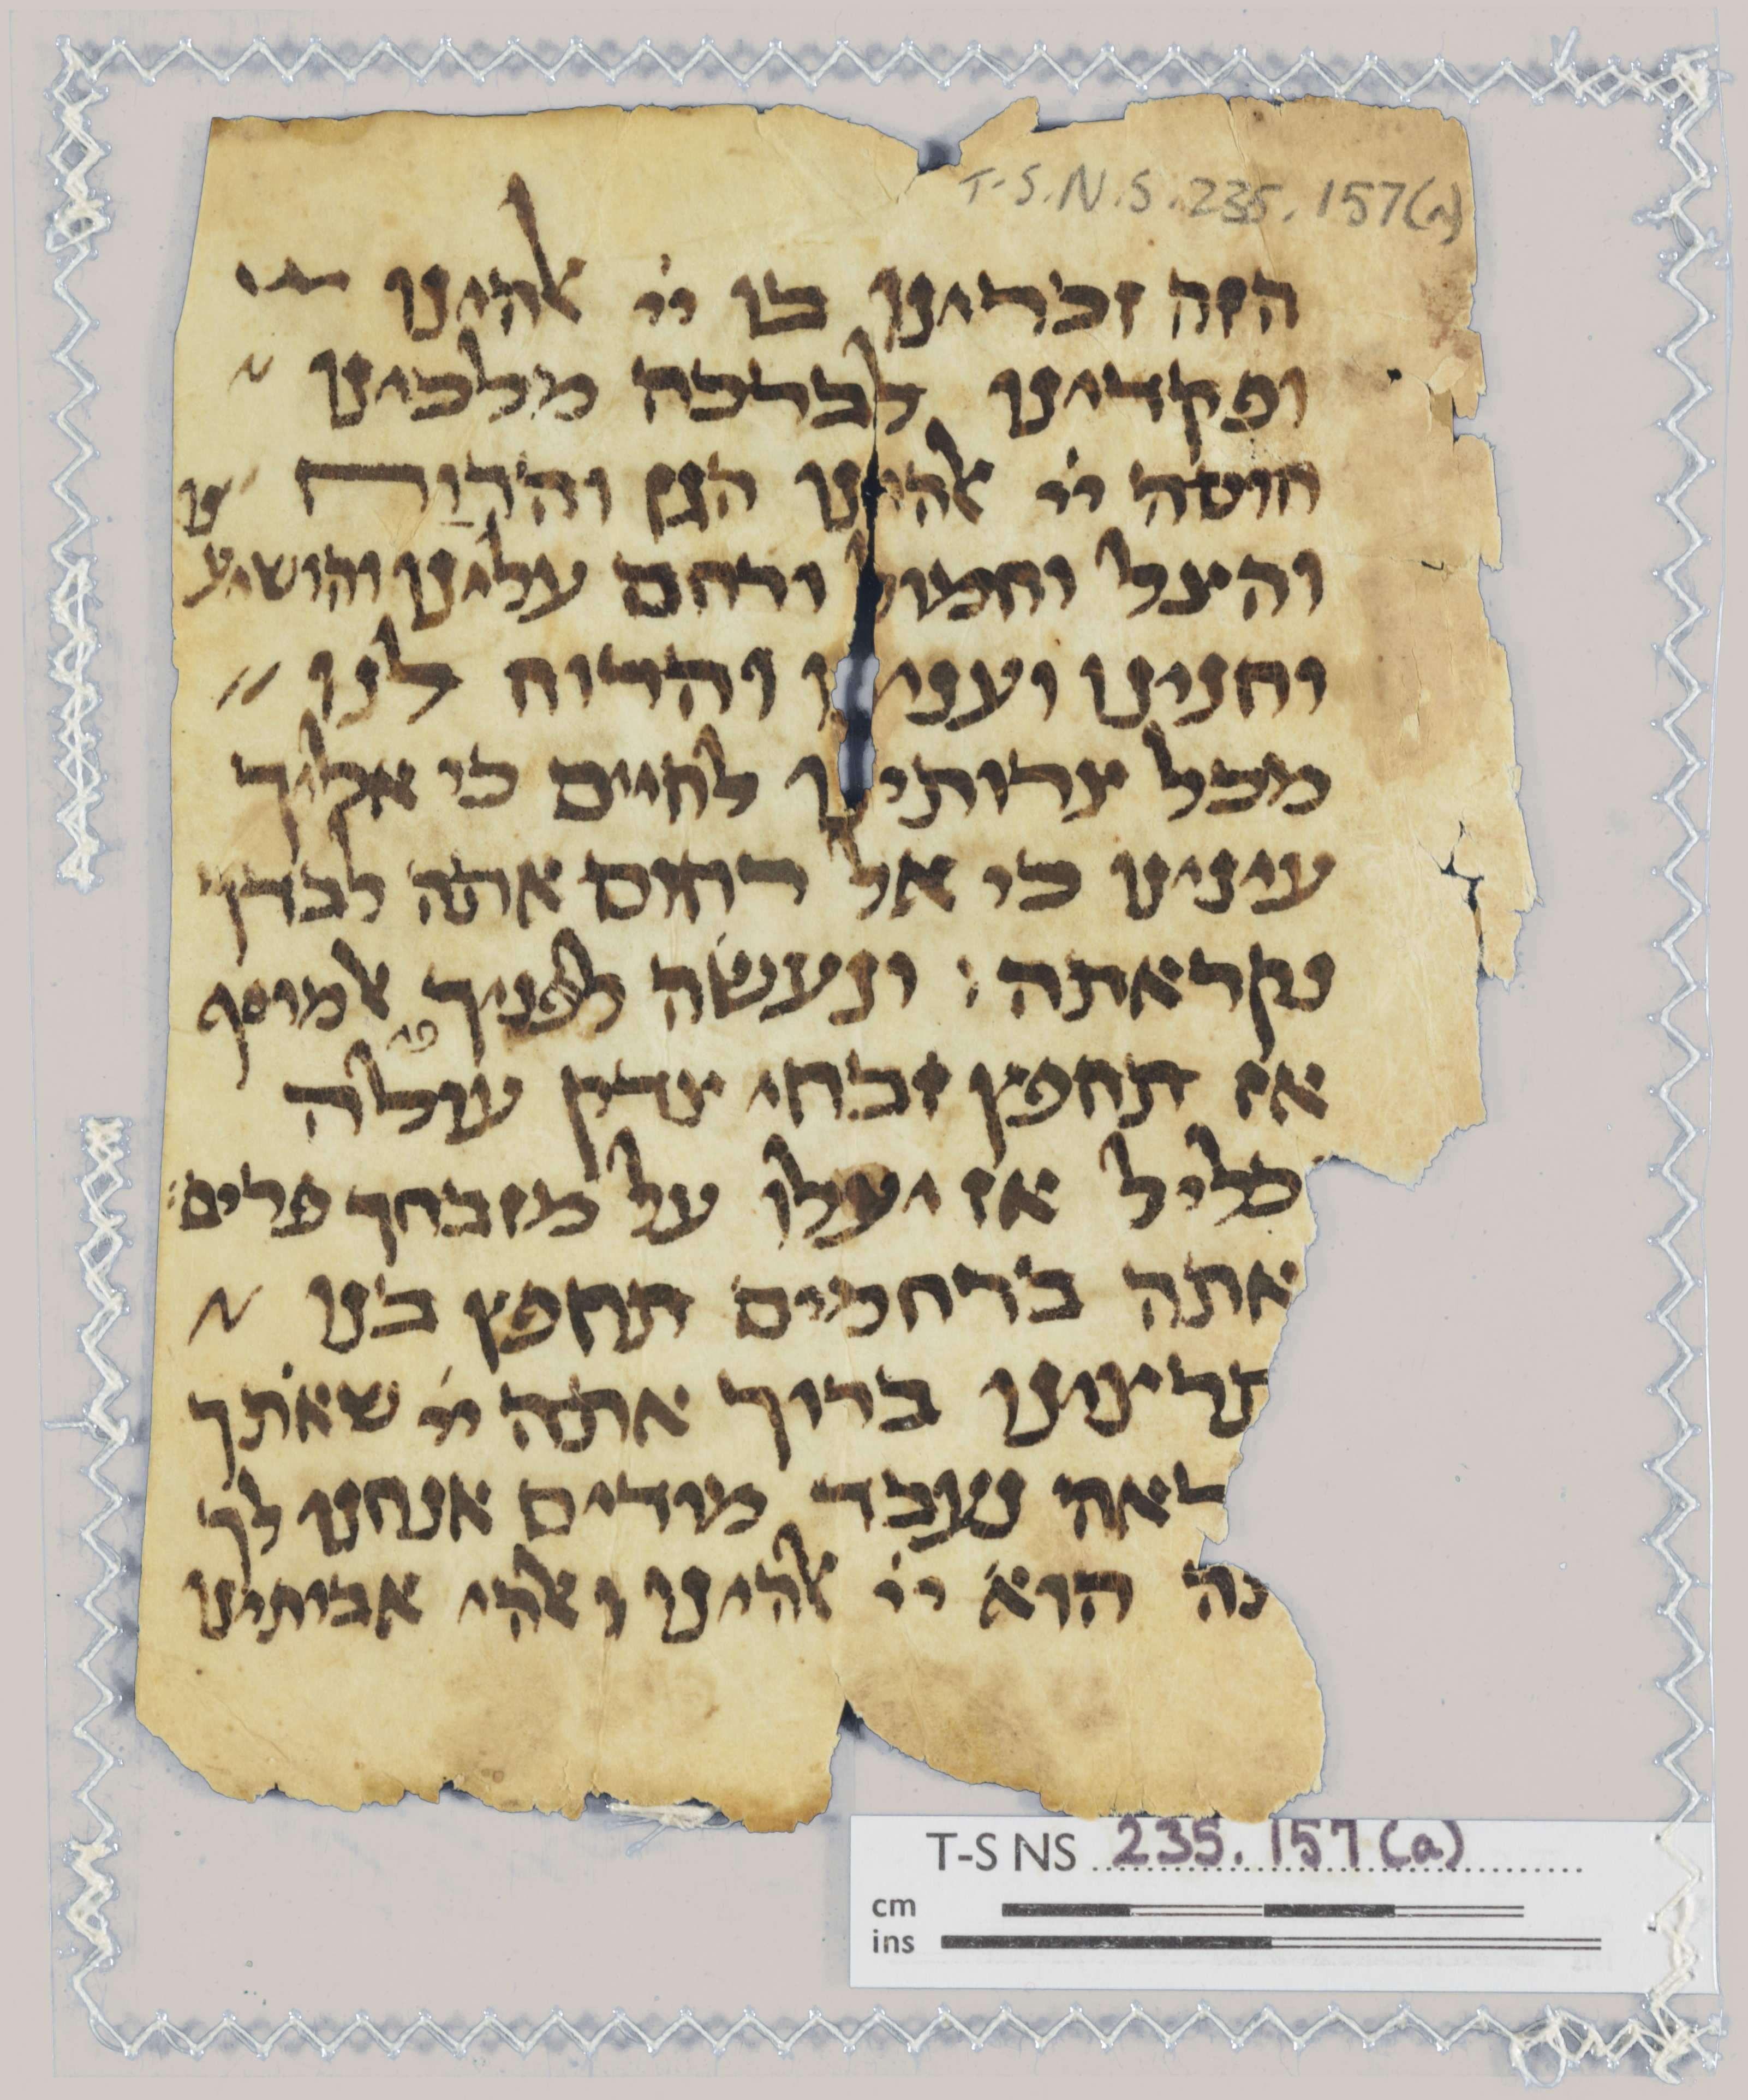 T-S.N.S.235.157(a)
הזה זכרינו בו יי אלהינו
ופקדינו לברכה מלכינו
חוסה יי אלהינו הגן והרוח
והיצל וחמול ורחם עלינו והושיע
וחנינו וענינו והרוח לנו
מכל צרותינו לחיים כי אליך
עינינו כי אל רחום אתה לבדך
נקראתה : ונעשה לפניך אמוסף
אז תחפץ זבחי צדק עולה
כליל אז יעלו על מזבחך פרים :
אתה ברחמים תחפץ בנו
תרצינו ברוך אתה יי שאותך
לאה נעבד מודים אנחנו לך
תה הוא יי אלהינו ואלהי אבותינו
T-S NS 235.157(a)
cm
ins